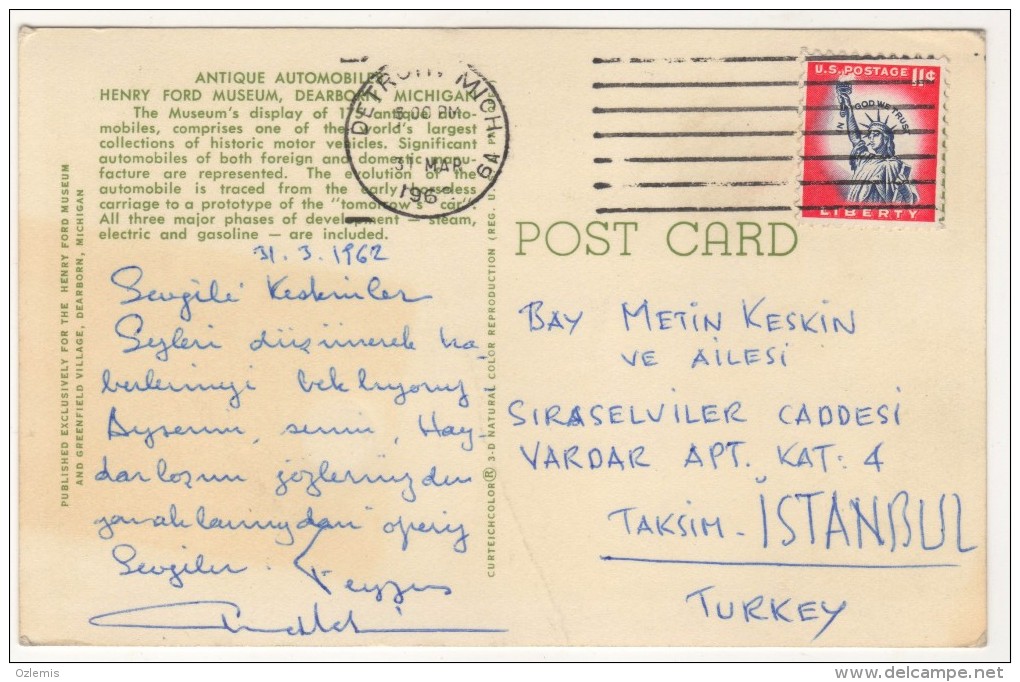 ANTIQUE AUTOMOBILES
HENRY FORD MUSEUM, DEARBORN, MICHIGAN
The Museum's display of antique auto-
mobiles, comprises one of the world's largest
collections of historic motor vehicles. Significant
automobiles of both foreign and domestic manu-
facture are represented. The evolution of the
automobile is traced from the early horseless
carriage to a prototype of the "tomorrow's car".
All three major phases of development — steam,
electric and gasoline — are included.
31.3.1962
Sevgili Keskinler
düşünerek ha-
berlerinizi bekliyoruz
Ayşenin, senin, Hay-
gözlerinizden
yanaklarınızdan öperiz
Sevgiler.
PUBLISHED EXCLUSIVELY FOR THE HENRY FORD MUSEUM
AND GREENFIELD VILLAGE, DEARBORN, MICHIGAN
CURTEICHCOLOR® 3-D NATURAL COLOR REPRODUCTION (REG. U.S.A.
DETROIT, MICH.
PM
31 MAR
196
U.S. POSTAGE 11¢
IN GOD WE TRUST
LIBERTY
POST CARD
BAY METİN KESKİN
VE AİLESİ
SIRASELVİLER CADDESİ
VARDAR APT. KAT: 4
TAKSİM - İSTANBUL
TURKEY
Ozlemis
www.delcampe.net